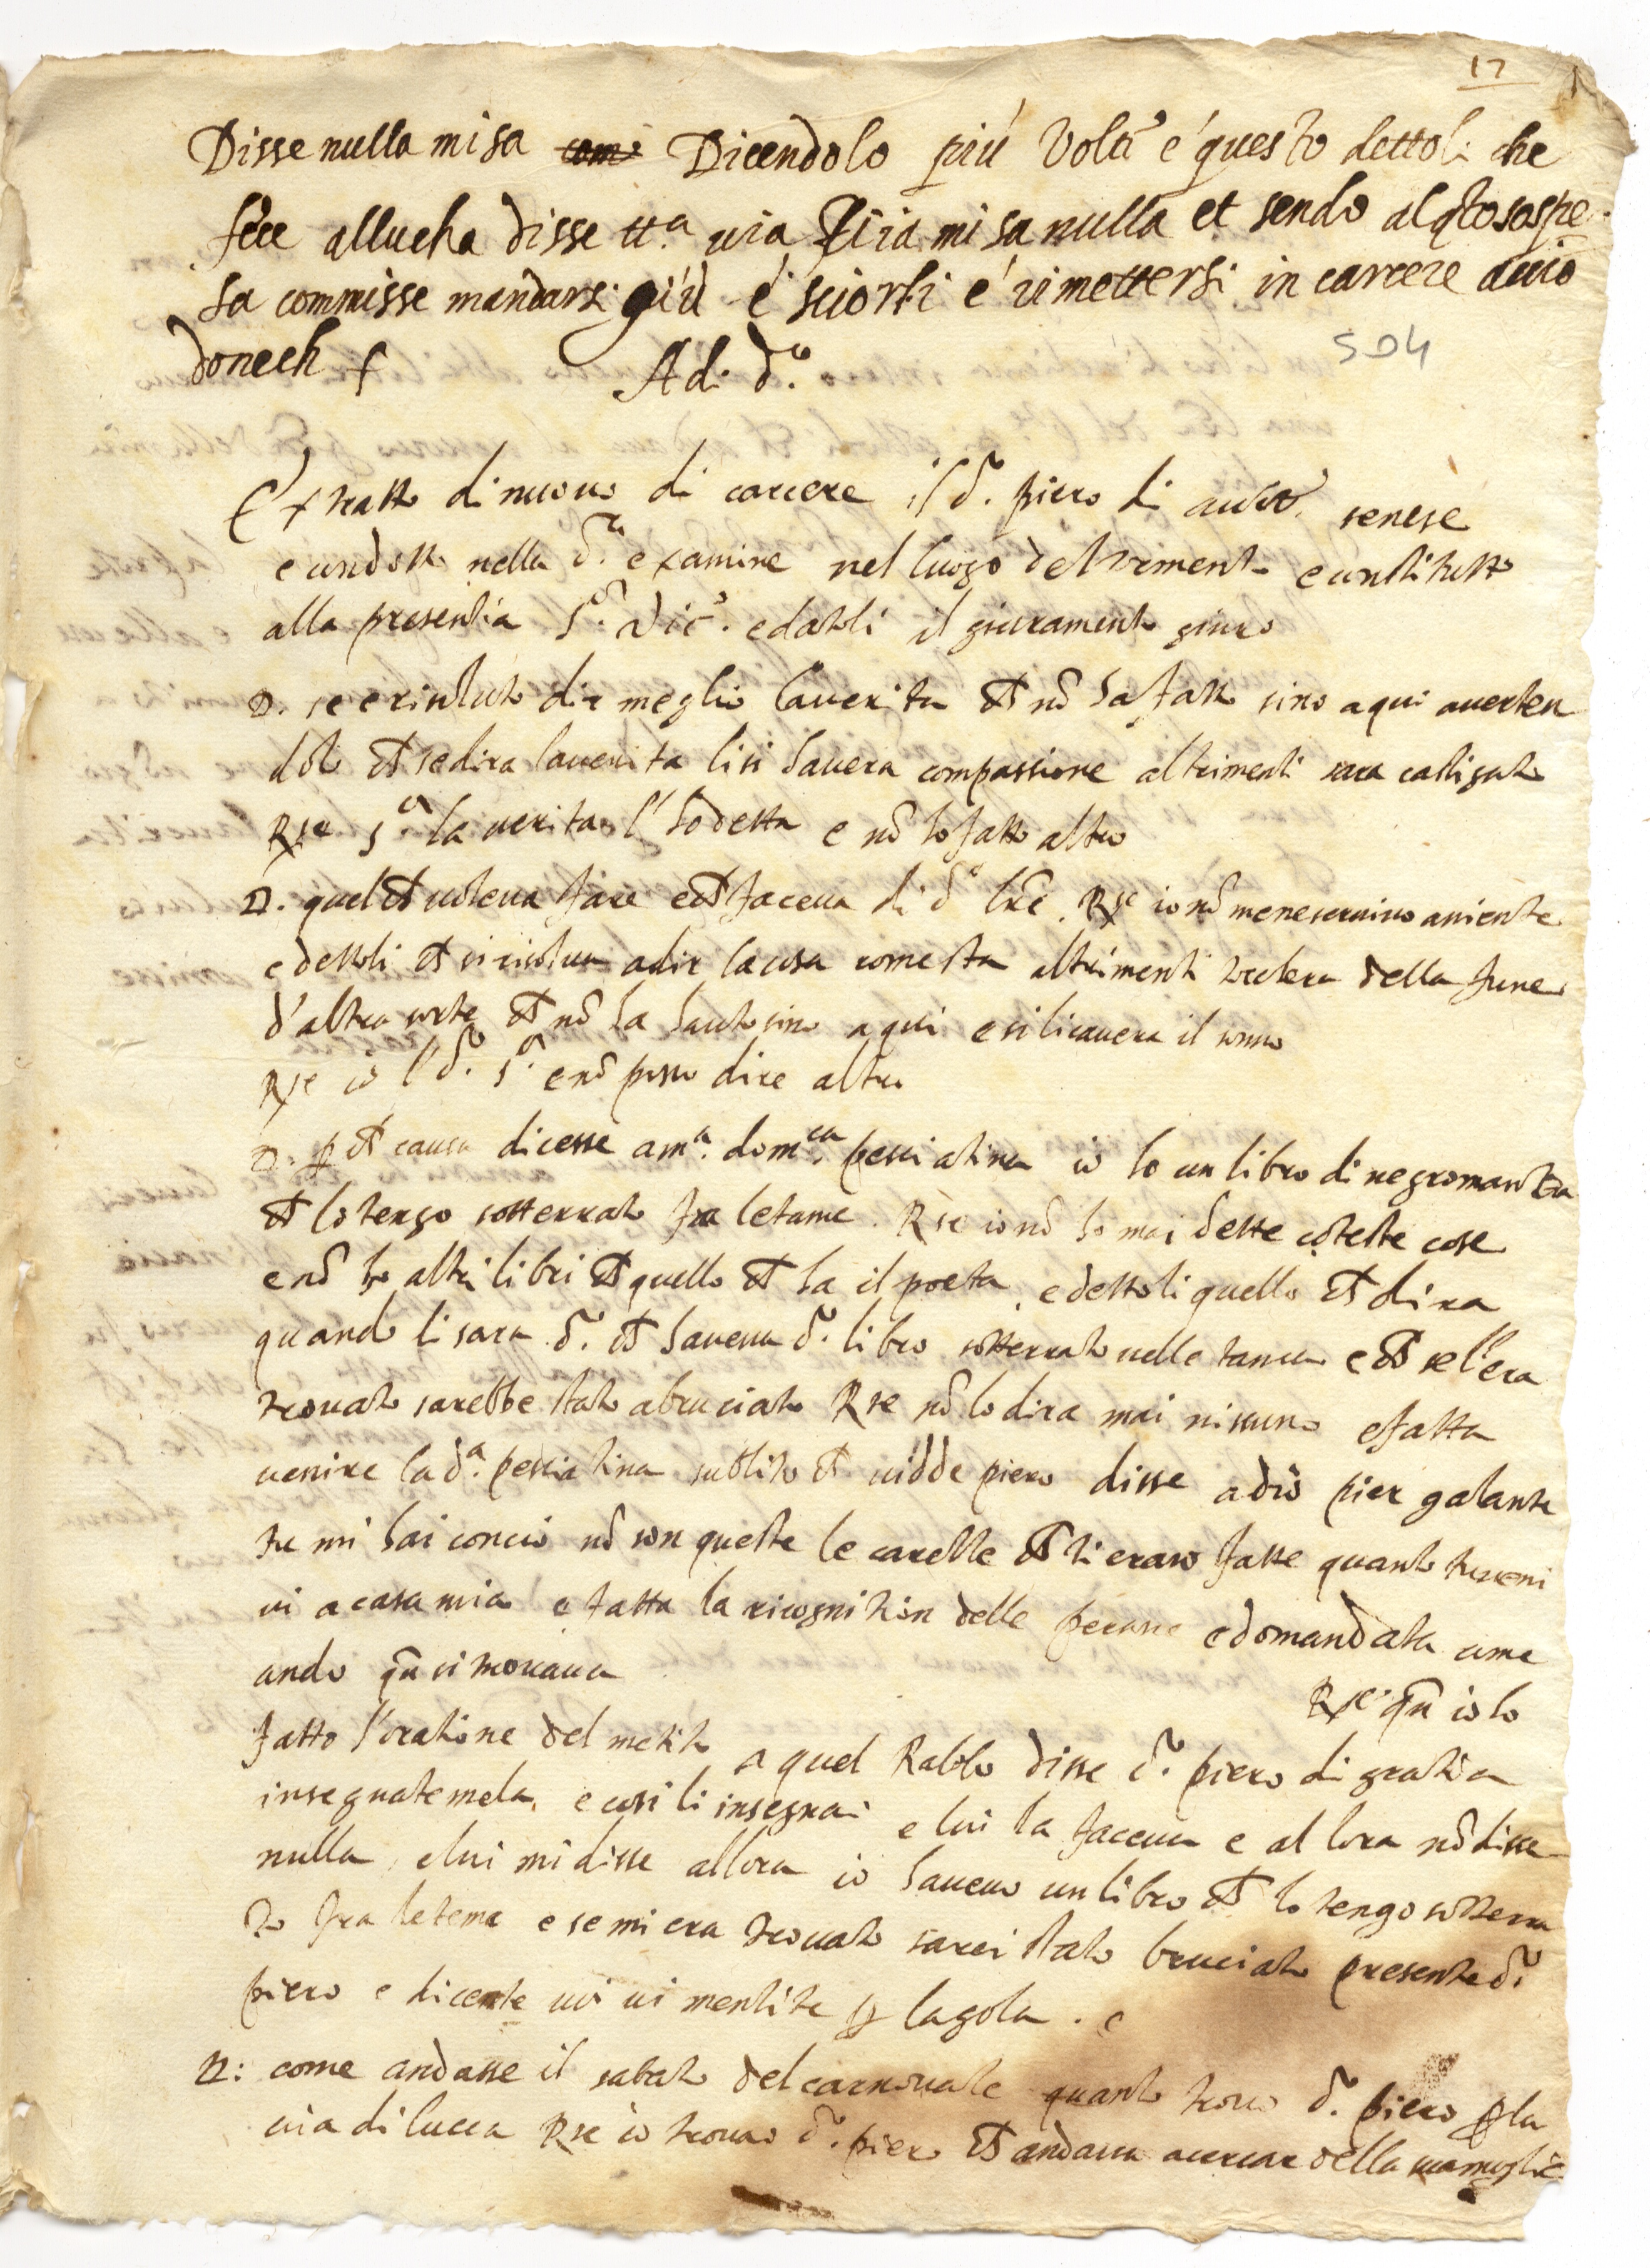 17
Disse nulla mi sa com Dicendolo più Volte é questo dettoli che
fece allucha disse tt.a via mi sa nulla et sendo al qto sospe
sa commisse mandarsi giù é sciorsi é rimettersi in carcere
donech
504
Adi d.o
Extratto di nuovo di carcere il d.o piero di senese
e condotto nella d.a examine nel luogo del e constituto
alla presentia S.a Vic.o e datoli il giuramento giuro
D. se e risoluto dir meglio la verita ch nō ha fatto sino a qui averten
doli ch se dira la verita li si havera compassione altrimenti sara castigato
Rse s.a la verita l'ho detta e nō ho fatto altro
D. quel ch voleva fare e ch faceva di d.e lre. Rse io nō me ne servivo a niente
e dettoli ch si risolva a dir la cosa come sta altrimenti tocchera della fune
d'altra sorte ch nō ha hauto sino a qui e si li cavera il sonno
Rse io l'o d.o s.a e nō posso dire altro
D. p ch causa dicesse a m.a dom.ca pesciatina io ho un libro di negromantia
ch lo tengo sotterrato fra letame. Rse io nō ho mai dette coteste cose
e nō ho altri libri ch quello ch ha il poeta e dettoli quello ch dira
quando li sara d.o ch haveva d.o libro sotterrato nelle tamen e ch se l'era
trovato sarebbe stato abruciato Rse nō lo dira mai nissuno e fatta
venire la d.a pesciatina subbito ch vidde piero disse adio pier galante
tu mi hai concio nō son queste le carezze ch ti erano fatte quanto tu veni
vi a casa mia e fatta la ricognition delle persone e domandata come
ando qn si trovava
Rse qn io ho
fatto l'oratione del metito a quel Rabbo disse d.o piero di gratia
insegnatemela e cosi li insegnai e lui la faceva e al lora nō disse
nulla e lui mi disse allora io havevo un libro ch lo tengo sotterra
to fra letame e se mi era trovato sarei stato bruciato presente d.o
piero e dicente voi vi mentite p la gola. e
D: come andasse il sabato del carnovale quanto trovo d.o piero p la
via di lucca Rse io trovai d.o piero ch andava a cercar della